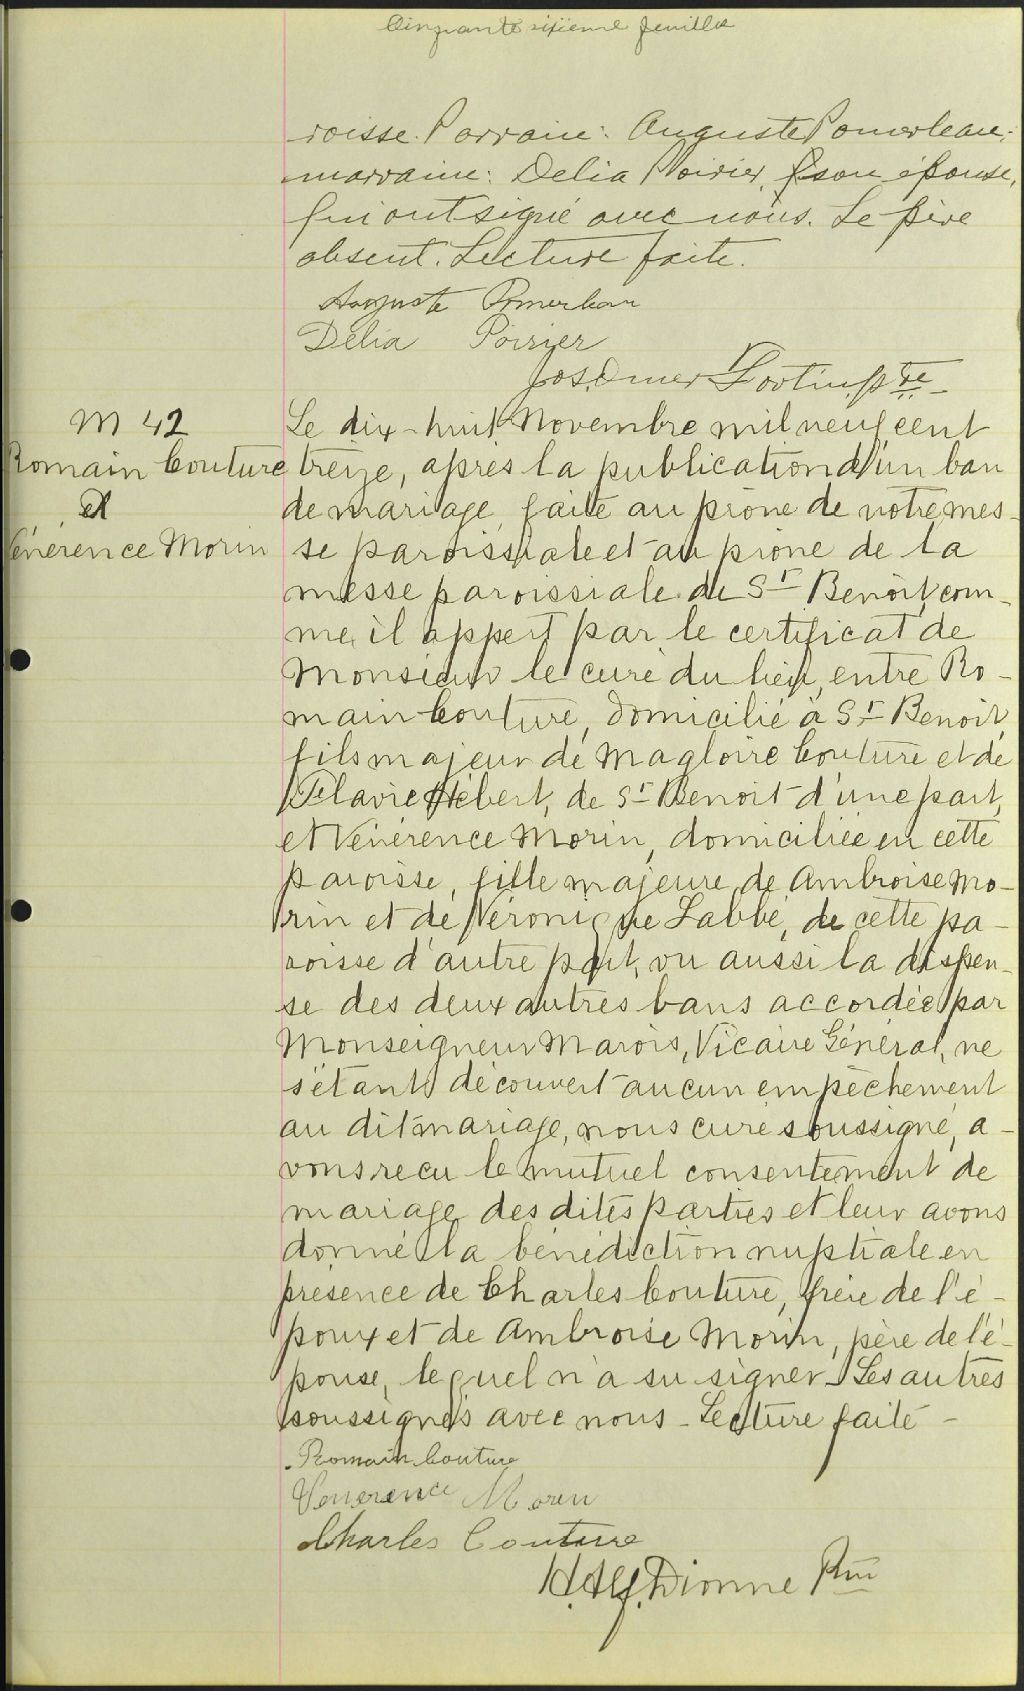 Cinquante sixième feuillet
roisse. Parrain: Auguste Pomerleau;
marraine: Delia Poirier, son épouse,
qui ont signé avec nous. Le père
absent. Lecture faite.
Auguste Pomerleau
Délia Poirier
Jos. Omer Fortin, ptre
M 42
Romain Couture
et
Vénérence Morin
Le dix-huit Novembre mil neuf cent
treize, après la publication d'un ban
de mariage faite au prône de notre mes-
se paroissiale et au prône de la
messe paroissiale de St Benoit, com-
me il appert par le certificat de
Monsieur le curé du lieu, entre Ro-
main Couture, domicilié à St Benoit,
fils majeur de Magloire Couture et de
Flavie Hébert, de St Benoit d'une part,
et Vénérence Morin, domiciliée en cette
paroisse, fille majeure de Ambroise Mo-
rin et de Véronique Labbé, de cette pa-
roisse d'autre part, vu aussi la dispen-
se des deux autres bans accordée par
Monseigneur Marois, Vicaire Général, ne
s'étant découvert aucun empêchement
au dit mariage, nous curé soussigné, a-
vons recu le mutuel consentement de
mariage des dites parties et leur avons
donné la bénédiction nuptiale en
présence de Charles Couture, frère de l'é-
poux et de Ambroise Morin, père de l'é-
pouse, lequel n'a su signer - Les autres
soussignés avec nous - Lecture faite -
Romain Couture
Venerence Morin
Charles Couture
H. Alf. Dionne Ptre